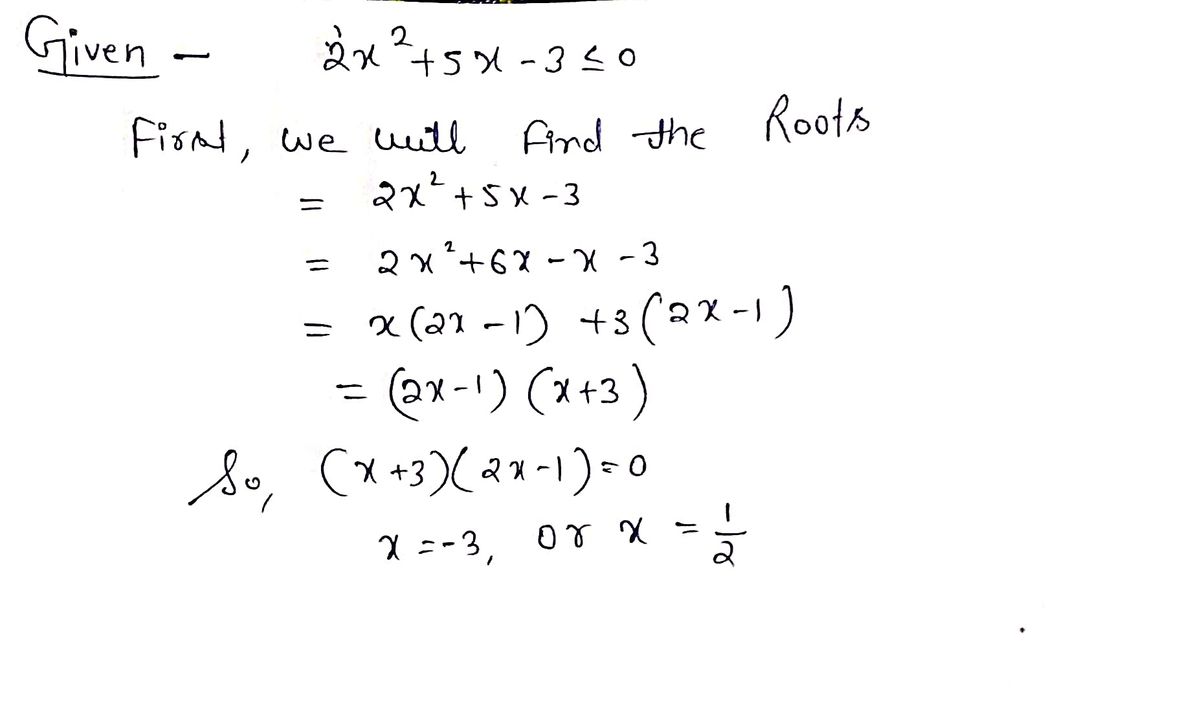 Given - 2x² + 5x - 3 ≤ 0
First, we will find the Roots
= 2x² + 5x - 3
= 2x² + 6x - x - 3
= x(2x - 1) + 3(2x - 1)
= (2x - 1) (x + 3)
So, (x + 3)(2x - 1) = 0
x = -3, or x = 1/2